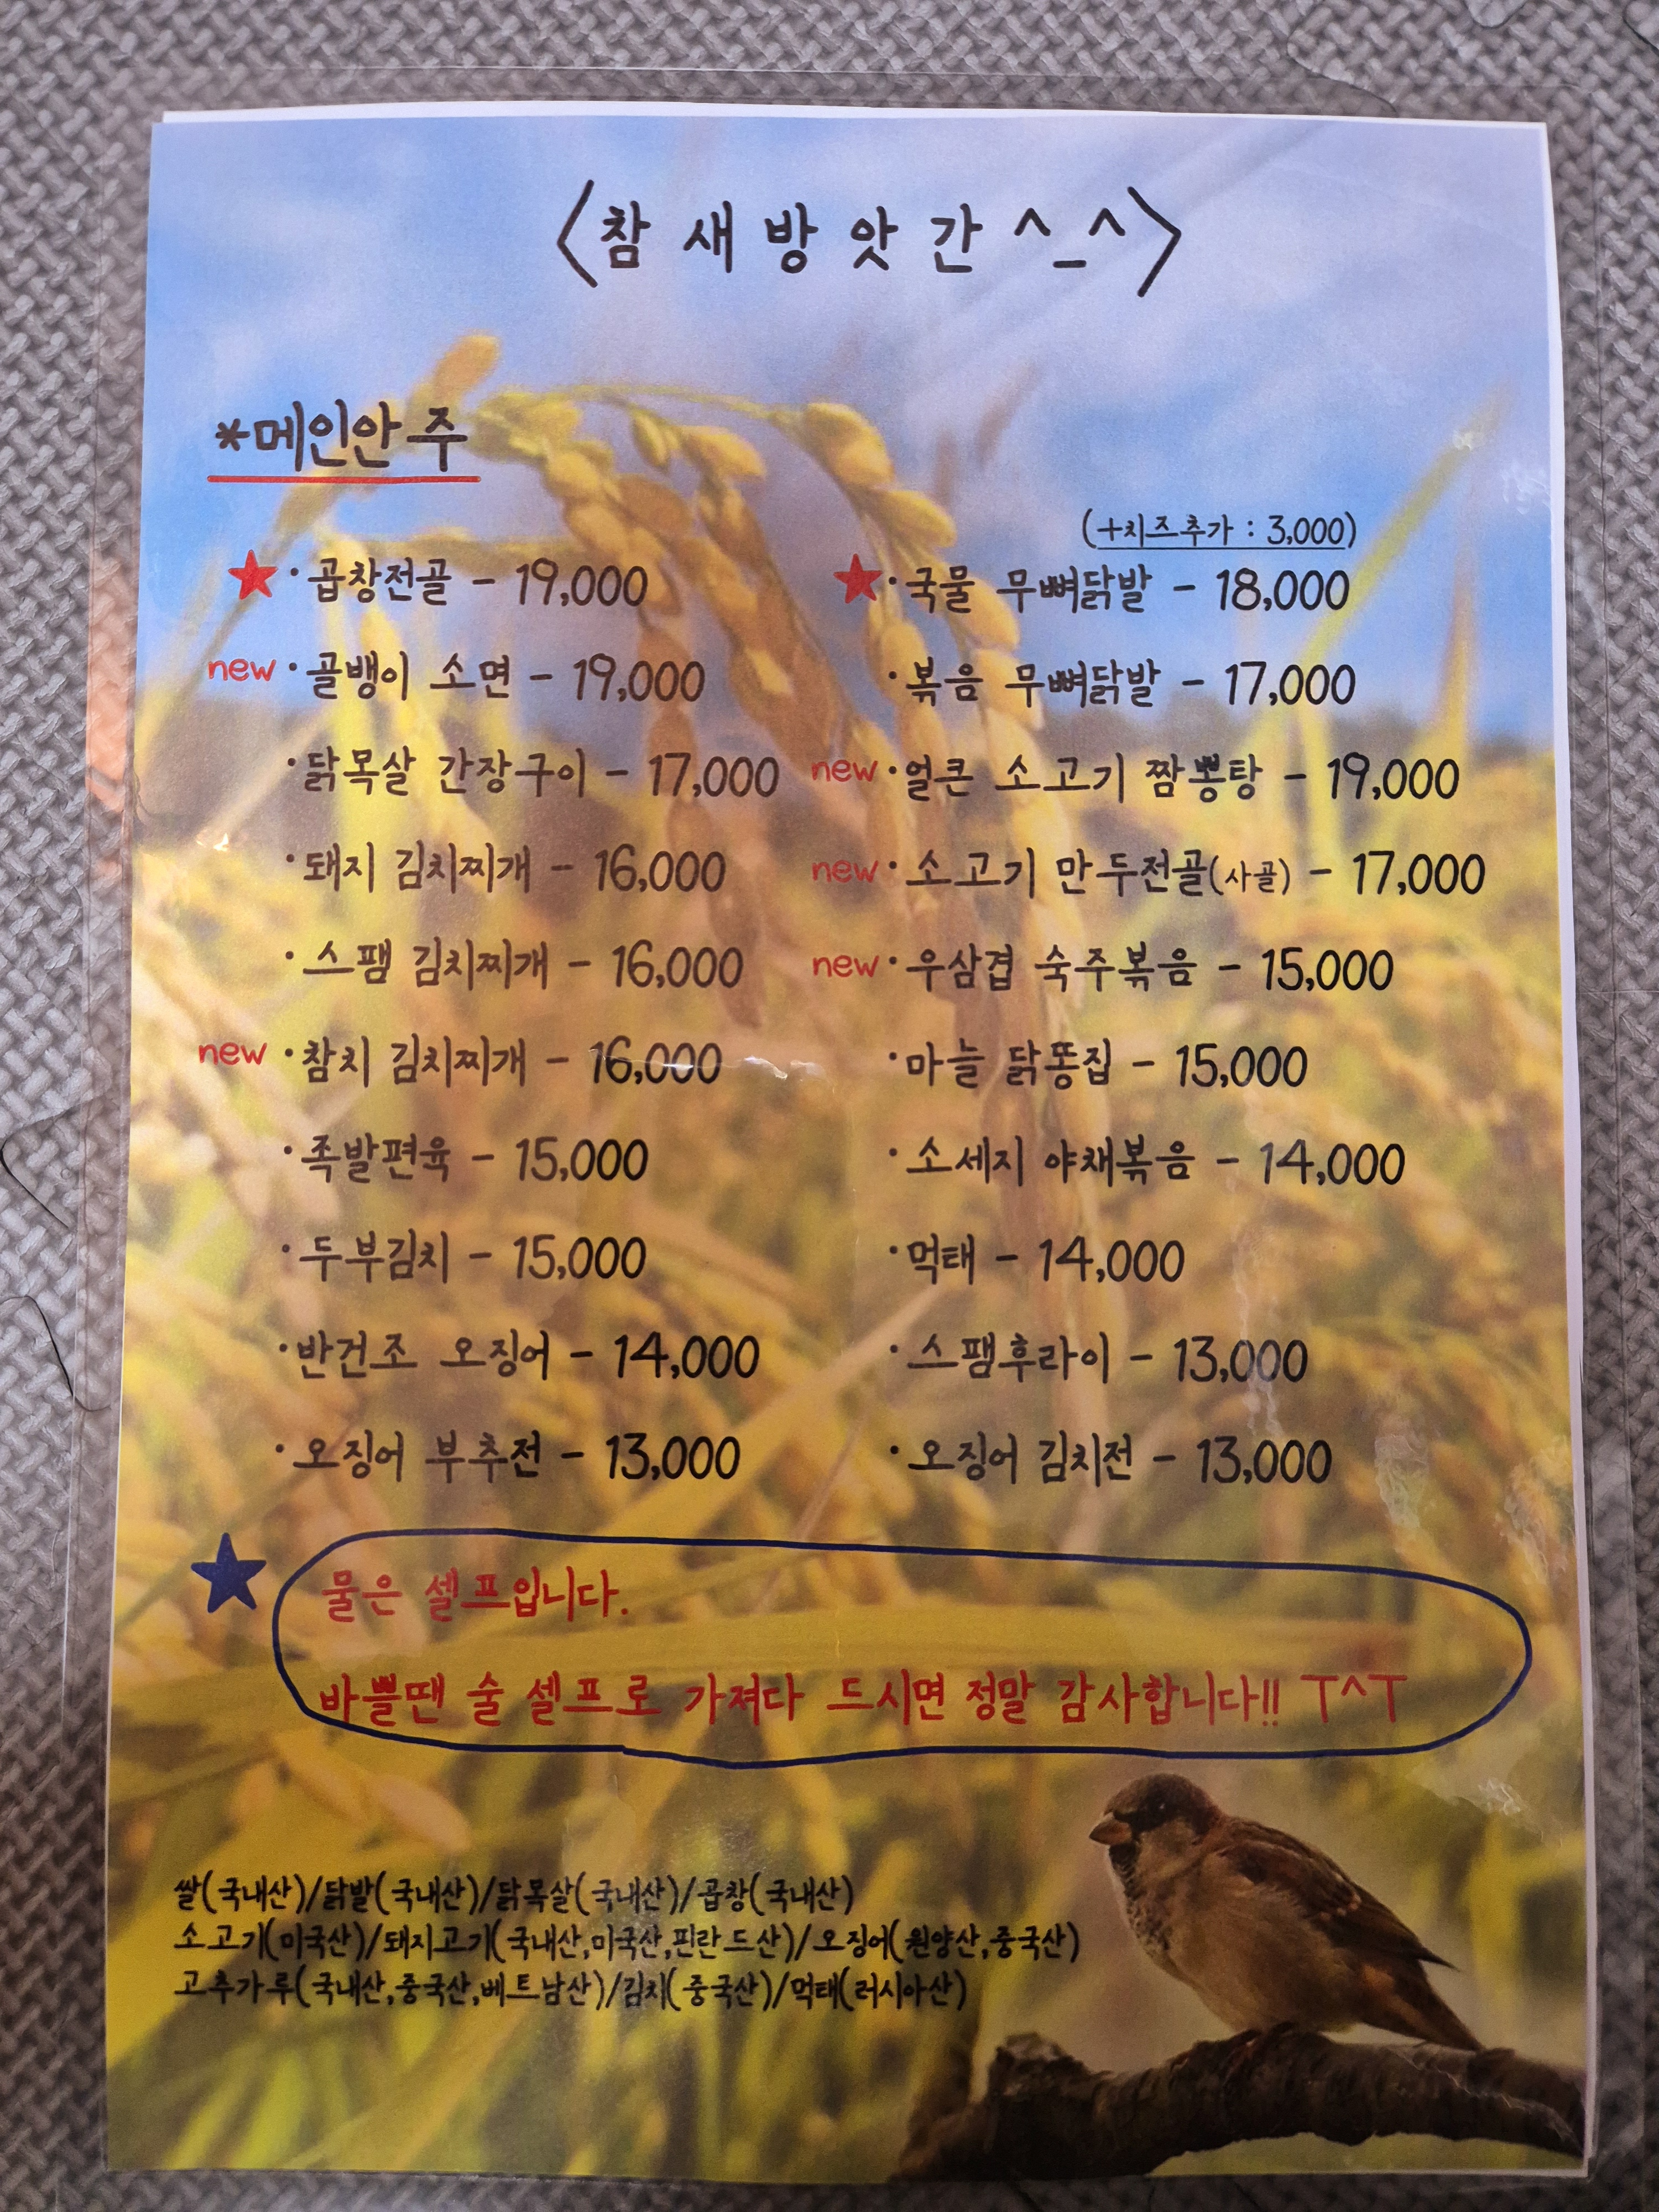 <참새방앗간^_^>
*메인안주
★·곱창전골 - 19,000
new·골뱅이 소면 - 19,000
·닭목살 간장구이 - 17,000
·돼지 김치찌개 - 16,000
·스팸 김치찌개 - 16,000
new·참치 김치찌개 - 16,000
·족발편육 - 15,000
·두부김치 - 15,000
·반건조 오징어 - 14,000
·오징어 부추전 - 13,000
(+치즈추가 : 3,000)
★·국물 무뼈닭발 - 18,000
·볶음 무뼈닭발 - 17,000
new·얼큰 소고기 짬뽕탕 - 19,000
new·소고기 만두전골(사골) - 17,000
new·우삼겹 숙주볶음 - 15,000
·마늘 닭똥집 - 15,000
·소세지 야채볶음 - 14,000
·먹태 - 14,000
·스팸후라이 - 13,000
·오징어 김치전 - 13,000
★ 물은 셀프입니다.
바쁠땐 술 셀프로 가져다 드시면 정말 감사합니다!! ㅜ^ㅜ
쌀(국내산)/닭발(국내산)/닭목살(국내산)/곱창(국내산)
소고기(미국산)/돼지고기(국내산,미국산,핀란드산)/오징어(원양산,중국산)
고추가루(국내산,중국산,베트남산)/김치(중국산)/먹태(러시아산)